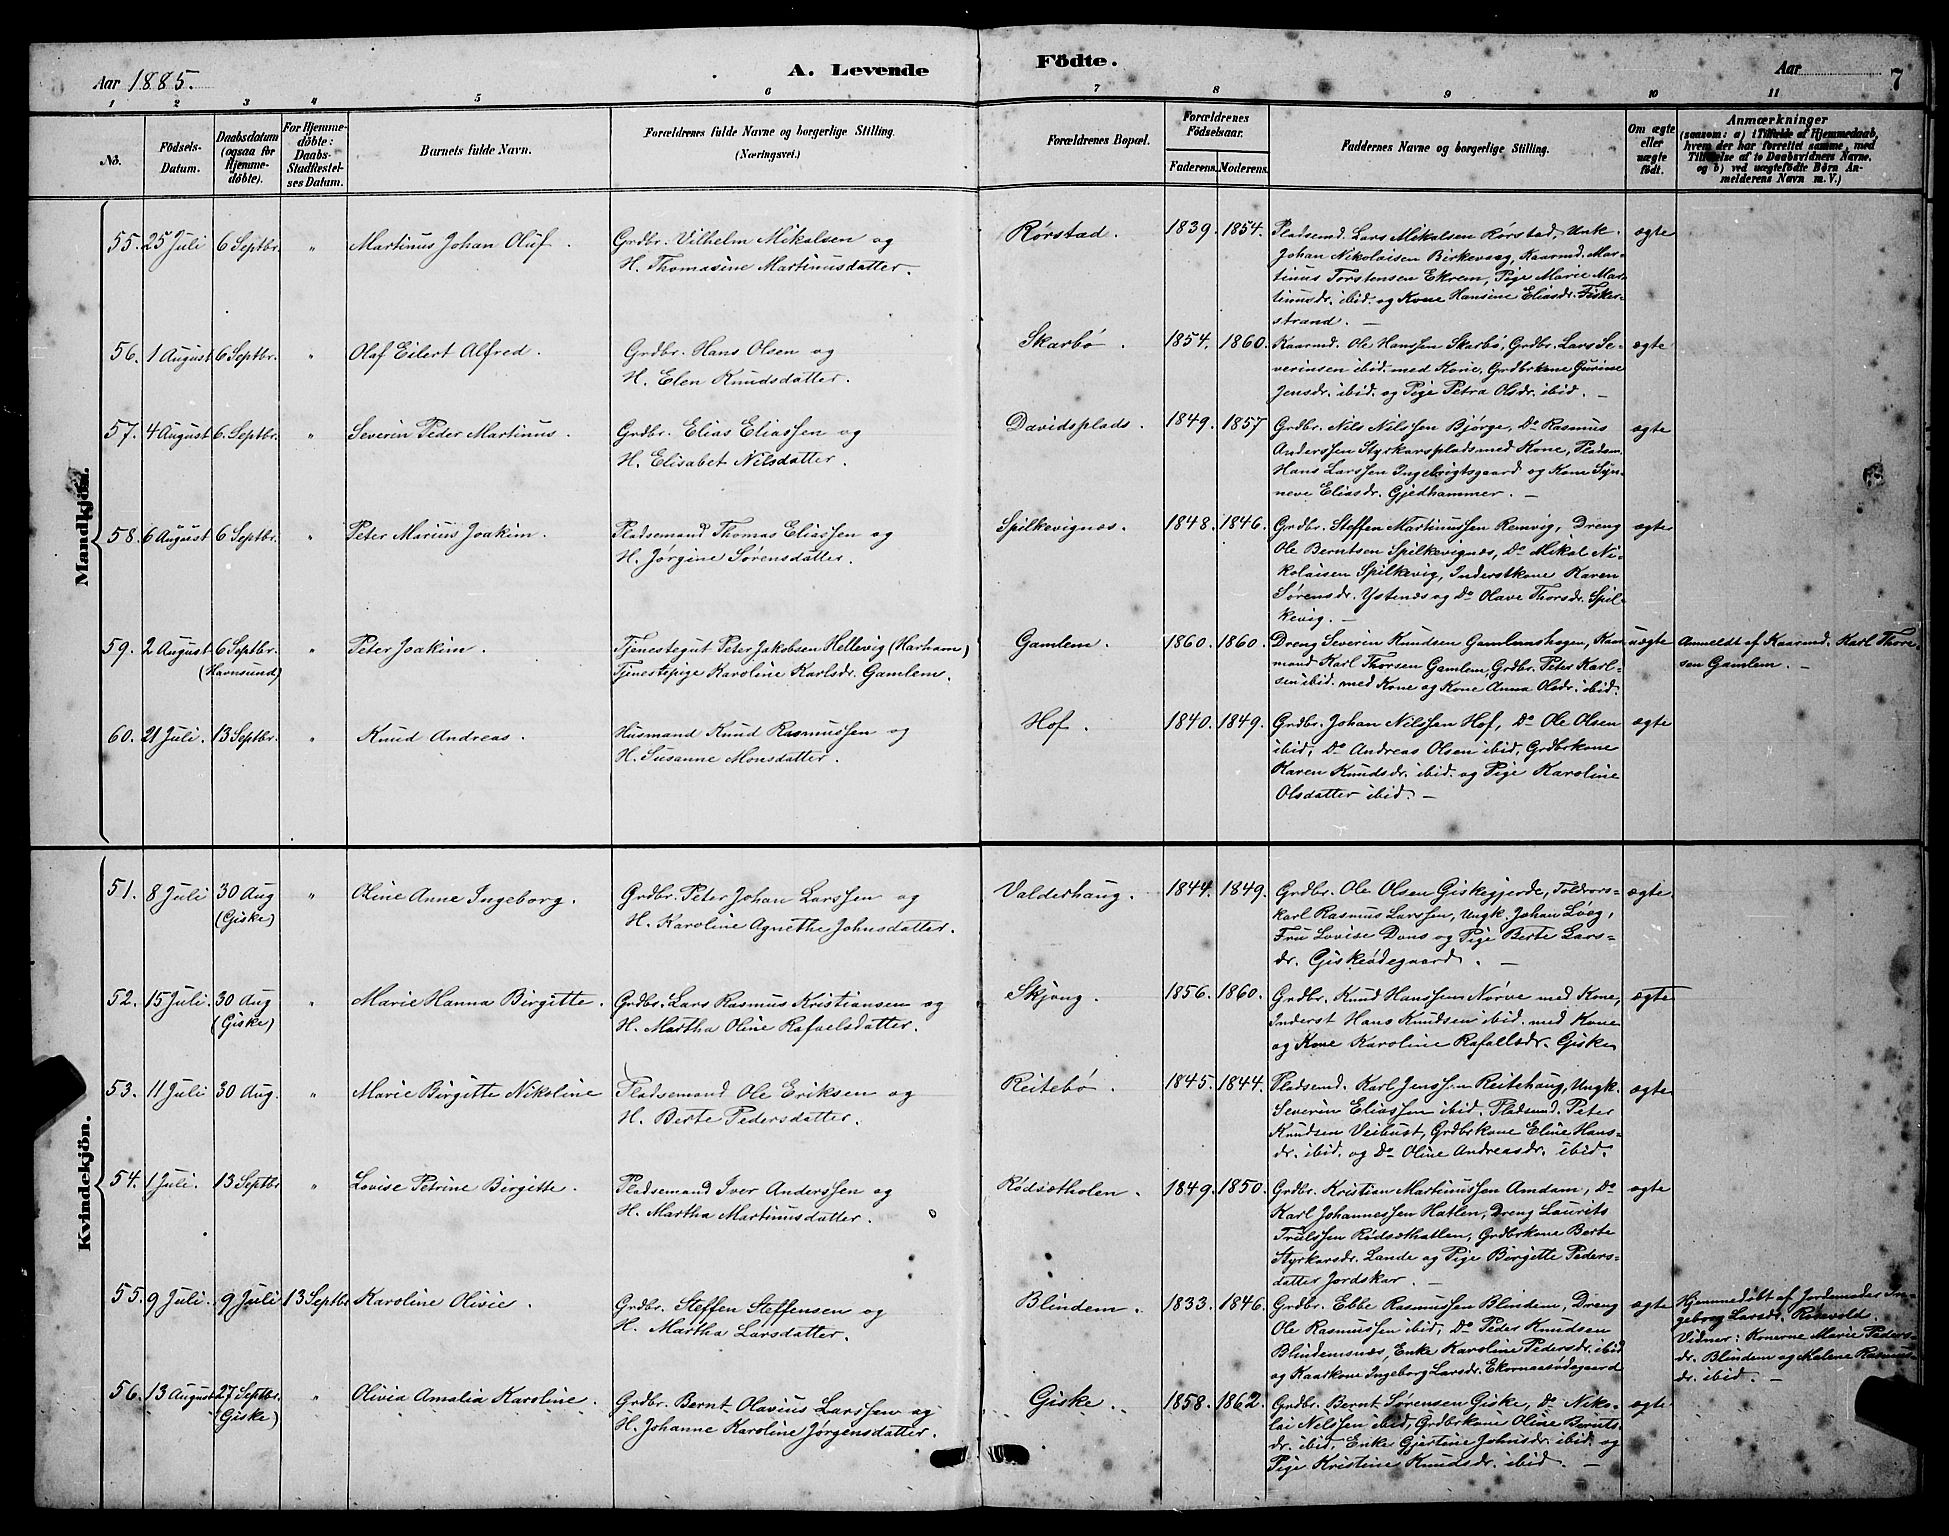 Aar 1885.
A. Levende
Födte.
Aar
7
1 2 3 4 5 6 7 8 9 10 11
Nò.
Födsels-
Datum.
Daabsdatum
(ogsaa for
Hjemme-
döbte).
For Hjemme-
döbte:
Daabs-
Stadfæstel-
ses Datum.
Barnets fulde Navn.
Forældrenes fulde Navne og borgerlige Stilling.
(Næringsvei.)
Forældrenes Bopæl.
Forældrenes
Födselsaar.
Faderens. Moderens.
Faddernes Navne og borgerlige Stilling.
Om ægte
eller
uægte
födt.
Anmærkninger
(saasom: a) i Tilfælde af Hjemmedaab,
hvem der har forrettet samme, med
Tilföielse af to Daabsvidners Navne,
og b) ved uægtefödte Börn An-
melderens Navn m. V.)
Mandkjön.
55. 25 Juli 6 Septbr. " Martinus Johan Oluf. Grdbr. Vilhelm Mikalsen og
H. Thomasine Martinusdatter.
Rørstad. 1839. 1854. Pladsemd. Lars Mikalsen Rørstad, Unk.
Johan Nikolaisen Birkevaag, Kaarmd. Mar-
tinus Torstensen Ekrem, Pige Marie Mar-
tinusdr. ibid. og Kone Hansine Eliasdr. Fisker-
strand. —
ægte
56. 1 August 6 Septbr. " Olaf Eilert Alfred. Grdbr. Hans Olsen og
H. Elen Knudsdatter.
Skarbø. 1854. 1860. Kaarmd. Ole Hanssen Skarbø, Grdbr. Lars Se-
verinsen ibid. med Kone, Grdbrkone Gurine
Jensdr. ibid. og Pige Petra Olsdr. ibid. —
ægte
57. 4 August 6. Septbr. " Severin Peder Martinus. Grdbr. Elias Eliassen og
H. Elisabet Nilsdatter.
Davidsplads. 1849. 1857 Grdbr. Nils Nilssen Bjørge, Do Rasmus
Anderssen Styrkarsplads med Kone, Pladsm.
Hans Larssen Ingebrigtsgaard og Kone Syn-
neve Eliasdr. Gjedhammer. —
ægte
58. 6 August 6 Septbr. " Peter Marius Joakim. Pladsemand Thomas Eliassen og
H. Jørgine Sørensdatter.
Spilkevignæs. 1848. 1846. Grdbr. Steffen Martinussen Remvig, Dreng
Ole Berntsen Spilkevignæs, Do Mikal Ni-
kolaisen Spilkevig, Inderstkone Karen
Sørensdr. Ystenæs og Do Olave Thorsdr. Spil-
kevig. —
ægte
59. 2 August 6 Septbr. " Peter Joakim. Tjenestegut Peter Jakobsen Hellevig (Harham)
(Havnsund) Tjenestepige Karoline Karlsdr. Gamlem.
Gamlem. 1860. 1860. Dreng Severin Knudsen Gamlemshagen, Kaar-
mand Karl Thorsen Gamlem, Grdbr. Peter Karl-
sen ibid. med Kone og Kone Anna Olsdr. ibid.
uægte Anmeldt af Kaarmd. Karl Thore-
sen Gamlem. —
60. 21 Juli. 13 Septbr. " Knud Andreas. Husmand Knud Rasmussen og
H. Susanne Monsdatter.
Hof. 1840. 1849. Grdbr. Johan Nilssen Hof, Do Ole Olsen
ibid, Do Andreas Olsen ibid, Grdbrkone
Karen Knudsdr. ibid. og Pige Karoline
Olsdatter ibid. —
ægte
Kvindekjön.
51. 8 Juli 30 Aug " Oline Anne Ingeborg. Grdbr. Peter Johan Larssen og
(Giske) H. Karoline Agnethe Johnsdatter.
Valderhaug. 1844. 1849. Grdbr. Ole Olsen Giskegjerde, Toldrors-
karl Rasmus Larssen, Ungk. Johan Løeg,
Fru Lovise Dons og Pige Berte Lars-
dr. Giskeødegaard. —
ægte.
52. 15 Juli. 30 Aug " Marie Hanna Birgitte. Grdbr. Lars Rasmus Kristiansen og
(Giske) H. Martha Oline Rafaelsdatter.
Skjong. 1856. 1860. Grdbr. Knud Hanssen Nørve med Kone,
Inderst Hans Knudsen ibid. med Kone
og Kone Karoline Rafaelsdr. Giske
ægte
53. 11 Juli 30 Aug. " Marie Birgitte Nikoline Pladsemand Ole Eriksen og
H. Berte Pedersdatter.
Reitebø. 1845. 1844. Pladsemd. Karl Jenssen Reitehaug, Ungk.
Severin Eliassen ibid. Pladsmd. Peter
Knudsen Veibust, Grdbrkone Eline Hans-
dr. ibid. og Do Oline Andreasdr. ibid.
ægte
54. 1 Juli. 13 Septbr " Lovise Petrine Birgitte. Pladsemand Iver Anderssen og
H. Martha Martinusdatter.
Rødsætholen. 1849. 1850. Grdbr. Kristian Martinussen Amdam, Do
Karl Johannessen Hatlen, Dreng Laurits
Trulssen Rødsæthatlen, Grdbrkone Berte
Styrkarsdr. Lande og Pige Birgitte Peders-
datter Jordskar. —
ægte
55. 9 Juli. 9 Juli 13 Septbr Karoline Olivie. Grdbr. Steffen Steffensen og
H. Martha Larsdatter.
Blindem. 1833. 1846. Grdbr. Ebbe Rasmussen Blindem, Dreng
Ole Rasmussen ibid, Do Peder Knudsen
Blindemsnæs, Enke Karoline Pedersdr. ibid
og Kaarkone Ingeborg Larsdr. Ekornæsødegaard
ægte Hjemmedøbt af Jordemoder In-
geborg Larsdr. Rødsvold.
Vidner: Konerne Marie Peders-
dr. Blindem og Malene Rasmus-
dr. ibid. —
56. 13 August 27 Septbr. " Olivia Amalia Karoline. Grdbr. Bernt Olavius Larssen og
(Giske) H. Johanne Karoline Jørgensdatter.
Giske. 1858. 1862. Grdbr. Bernt Sørensen Giske, Do Niko-
lai Nelssen ibid, Grdbrkone Oline Bernts-
dr. ibid, Enke Gjertine Johnsdr. ibid. og
Pige Kristine Knudsdr. ibid. —
ægte